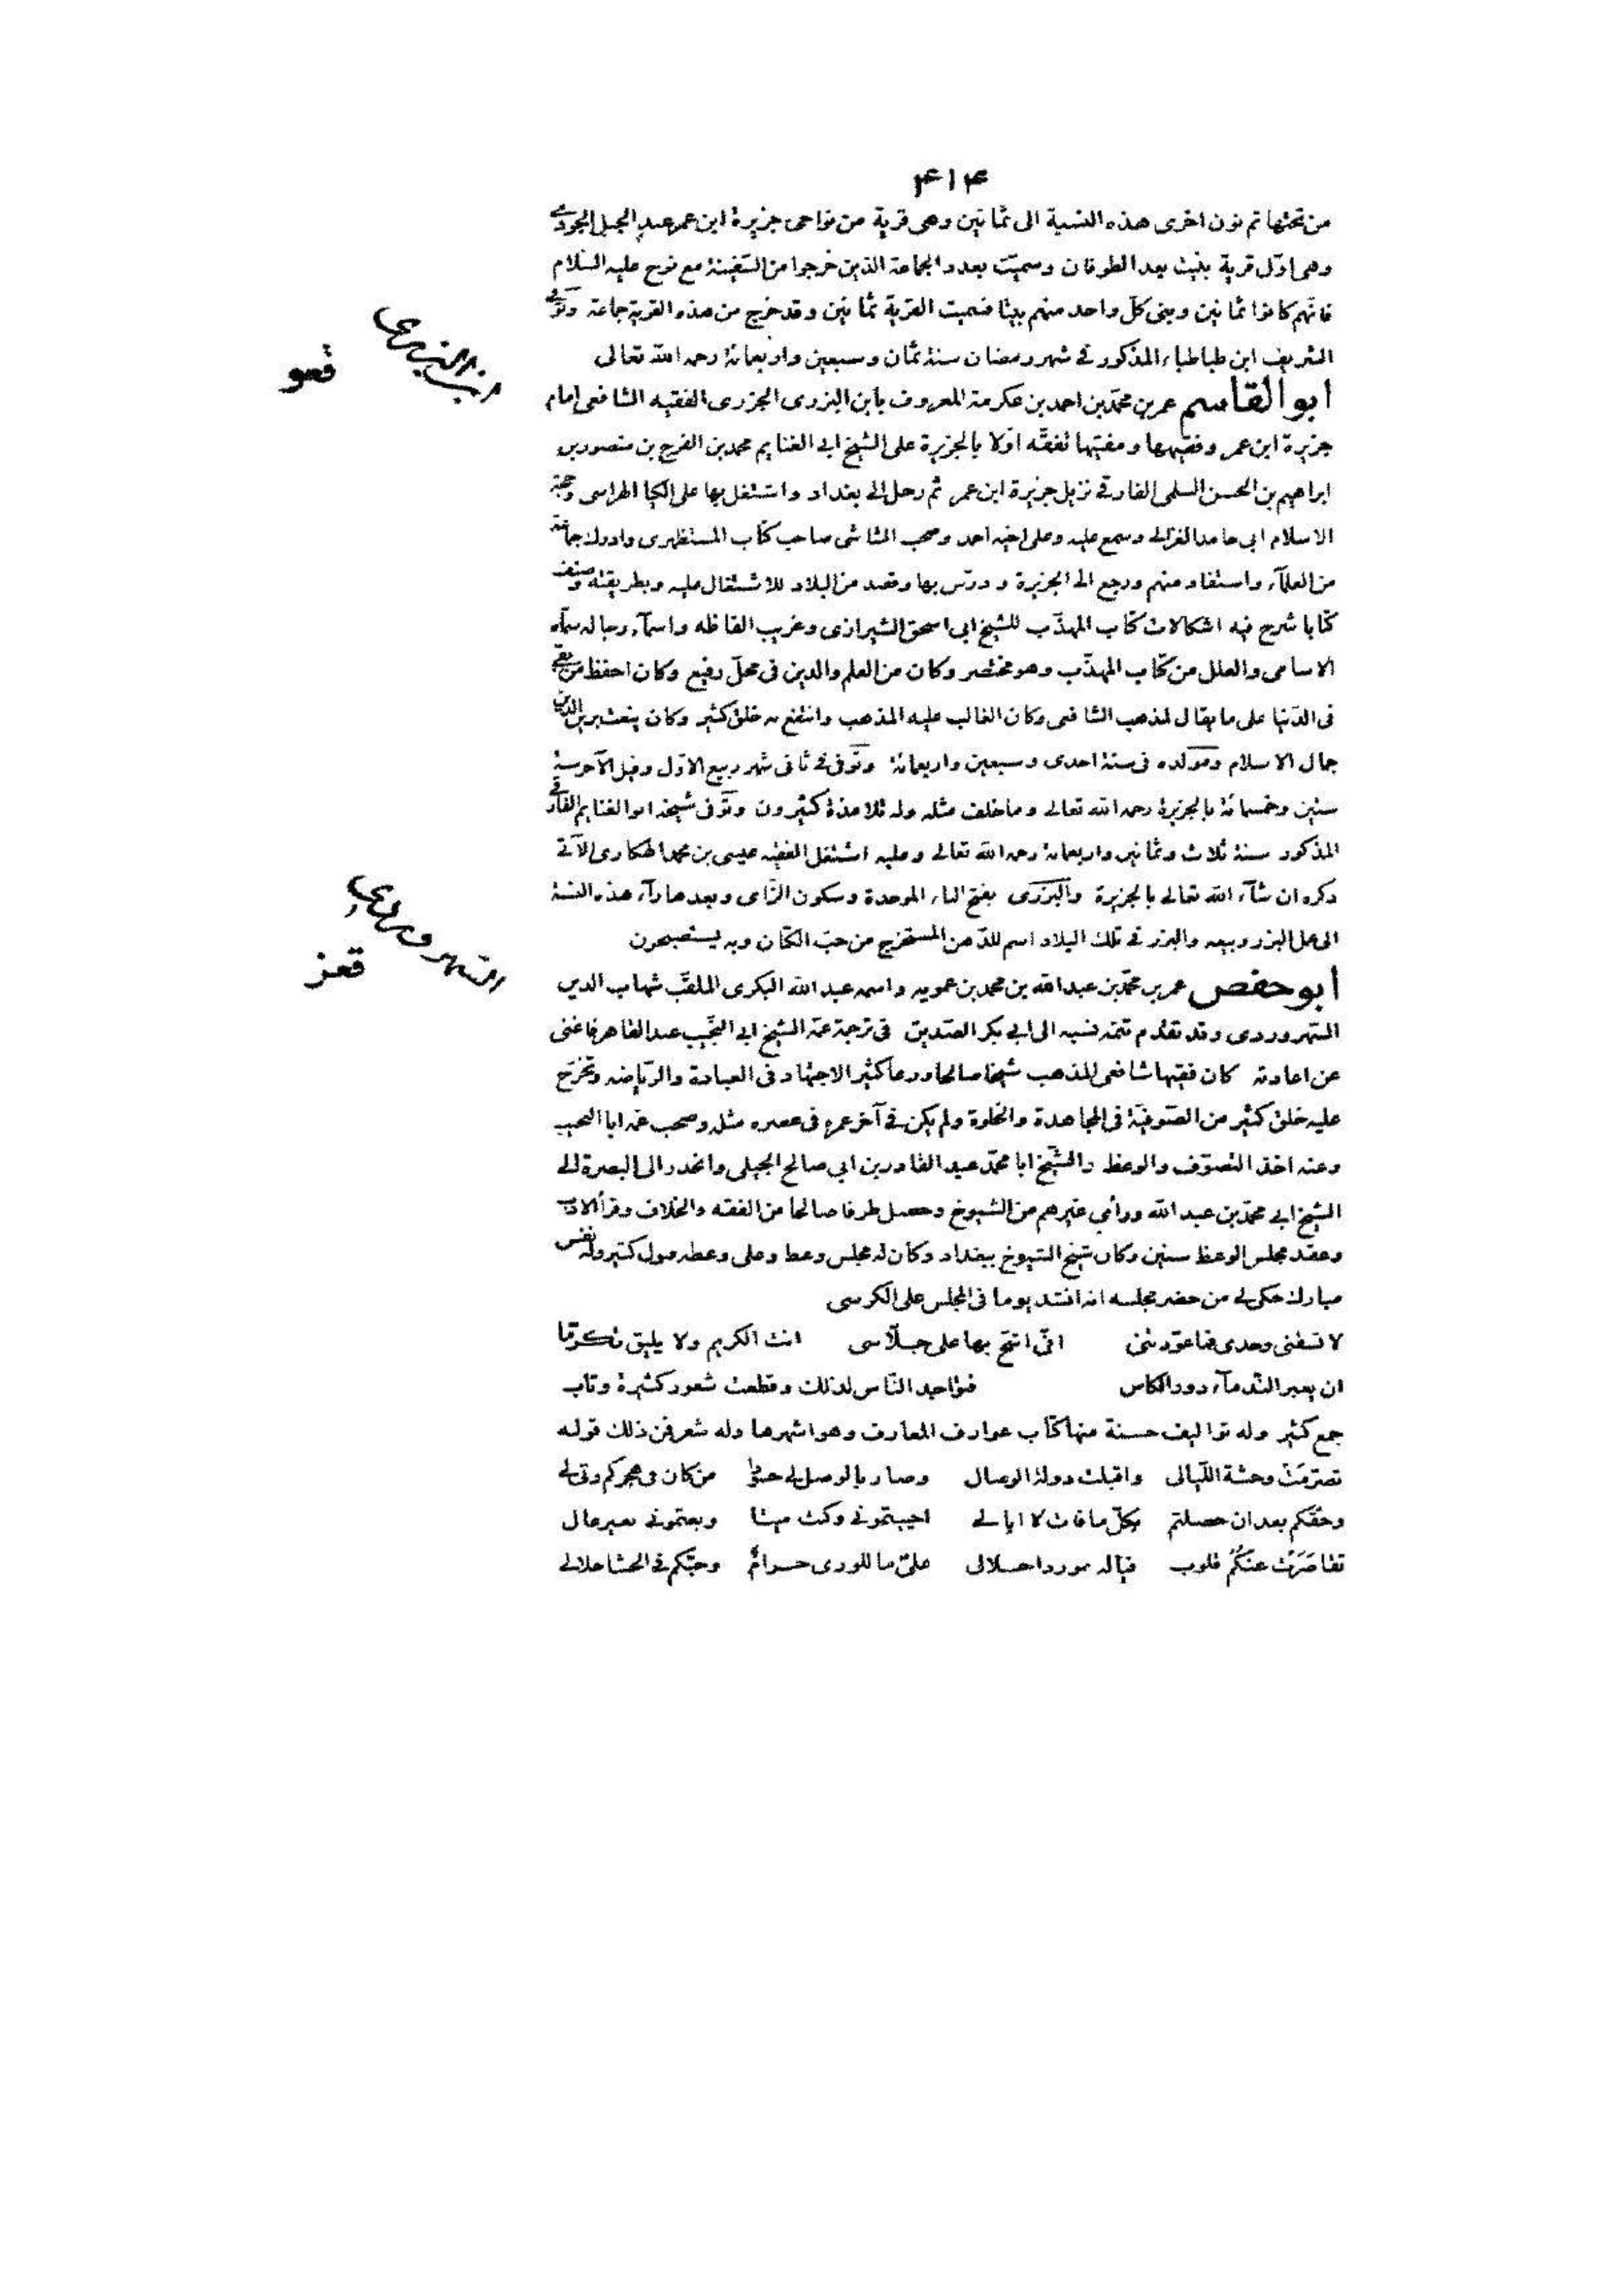 ۴۱۴
من تحتها ثم نون اخرى هذه النسبة الى ثمانين وهى قرية من نواحى جزيرة ابن عمر عند الجبل الجودى
وهى اوّل قرية بنيت بعد الطوفان وسميّت بعدد الجماعة الذين خرجوا من السّفينة مع نوح عليه السّلام
فانّهم كانوا ثمانين وبنى كلّ واحد منهم بيتا فسميت القرية ثمانين وقد خرج من هذه القرية جماعة وتوفى
الشريف ابن طباطباء المذكور فى شهر رمضان سنة ثمان وسبعين واربعمائة رحمه اللّه تعالى
ابن البزرى
قعو
ابو القاسم عمر بن محمّد بن احمد بن عكرمة المعروف بابن البزرى الجزرى الفقيه الشافعى امام
جزيرة ابن عمر وفقيهها ومفتيها تفقّه اوّلا بالجزيرة على الشيخ ابى الغنايم محمد بن الفرج بن منصور بن
ابراهيم بن الحسن السلمى الفارقى نزيل جزيرة ابن عمر ثم رحل الى بغداد واشتغل بها على الكيا الهراسى وحجة
الاسلام ابى حامد الغزالى وسمع عليه وعلى اخيه احمد وصحب الشاشى صاحب كتاب المستظهرى وادرك جماعة
من العلمآء واستفاد منهم ورجع الى الجزيرة ودرّس بها وقصد من البلاد للاشتغال عليه وبطريقته وصنف
كتابا شرح فيه اشكالات كتاب المهذّب للشيخ ابى اسحق الشيرازى وغريب الفاظه واسمآء رجاله سمّاه
الاسامى والعلل من كتاب المهذّب وهو مختصر وكان من العلم والدين فى محلّ رفيع وكان احفظ من بقى
فى الدّنيا على ما يقال لمذهب الشافعى وكان الغالب عليه المذهب وانتفع به خلق كثير وكان ينعت بزين الدين
جمال الاسلام ومولده فى سنة احدى وسبعين واربعمائة وتوّفى فى ثانى شهر ربيع الاوّل وقيل الآخر سنة
ستين وخمسمائة بالجزيرة رحمه اللّه تعالى وما خلف مثله وله تلامذة كثيرون وتوّفى شيخه ابو الغنايم الفارقى
المذكور سنة ثلاث وثمانين واربعمائة رحمه اللّه تعالى وعليه اشتغل الفقيه عيسى بن محمد الهكارى الآتى
ذكره ان شآء اللّه تعالى بالجزيرة والبزرى بفتح الباء الموحدة وسكون الزّاى وبعدها رآء هذه النسبة
الى عمل البزر وبيعه والبزر فى تلك البلاد اسم للدّهن المستخرج من حبّ الكتّان وبه يستصبحون
السّهروردى
قعز
ابو حفص عمر بن محمّد بن عبد اللّه بن محمد بن عمويه واسمه عبد اللّه البكرى الملقّب شهاب الدين
السّهروردى وقد تقدّم تتمة نسبه الى ابى بكر الصّديق فى ترجمة عمّه الشيخ ابى النّجيب عبد القاهر فاغنى
عن اعادته كان فقيها شافعى المذهب شيخا صالحا ورعا كثير الاجتهاد فى العبادة والرّياضه وتخرّج
عليه خلق كثير من الصّوفيّة فى المجاهدة والخلوة ولم يكن فى آخر عمره فى عصره مثله وصحب عمه ابا النجيب
وعنه اخذ التصوّف والوعظ والشّيخ ابا محمّد عبد القادر بن ابى صالح الجيلى وانحدر الى البصرة الى
الشيخ ابى محمّد بن عبد اللّه ورأى غيرهم من الشيوخ وحصل طرفا صالحا من الفقه والخلاف وقرأ الادب
وعقد مجلس الوعظ سنين وكان شيخ الشيوخ ببغداد وكان له مجلس وعظ وعلى وعظه قبول كثير وله نفس
مبارك حكى لى من حضر مجلسه انه انشد يوما فى المجلس على الكرسى
لا تسقنى وحدى فما عوّدتنى انّى اشحّ بها على جلّاسى انت الكريم ولا يليق تكرّما
ان يعبر النّدمآء دور الكاس فتواجد النّاس لذلك وقطعت شعور كثيرة وتاب
جمع كثير وله تواليف حسنة منها كتاب عوارف المعارف وهو اشهرها وله شعر فمن ذلك قوله
تصرّمت وحشة اللّيالى واقبلت دولة الوصال وصار بالوصل لى حسودا من كان فى هجركم رثى لى
وحقّكم بعد ان حصلتم بكلّ ما فات لا ابالى احييتمونى وكنت ميتا وبعتمونى بغير غال
تقاصرت عنكم قلوب فياله موردا حلالى علىّ ما للورى حرام وحبّكم فى الحشا حلالى